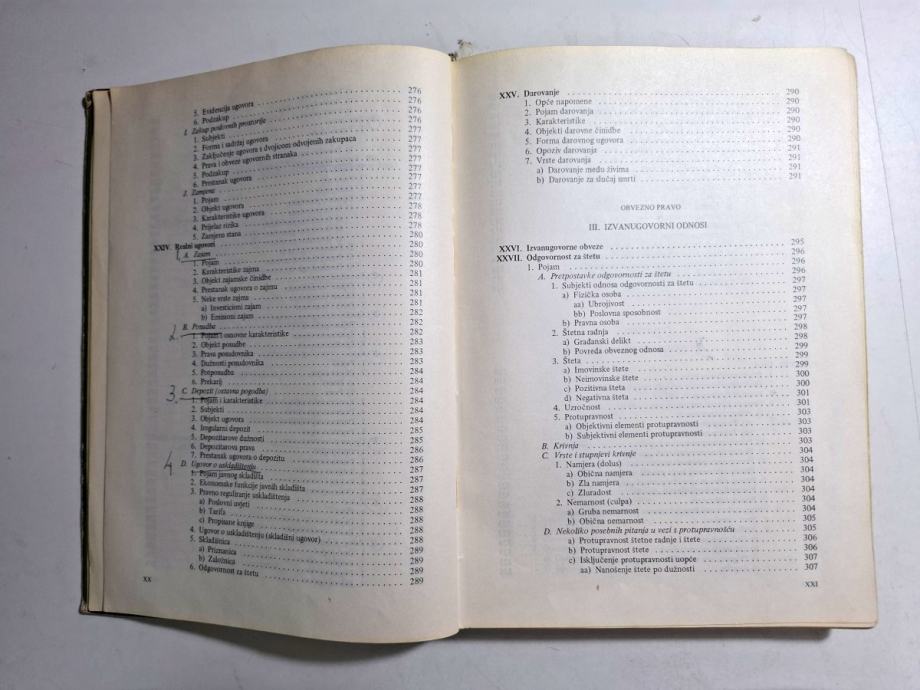 5. Evidencija ugovora 276
6. Podzakup 276
I. Zakup poslovnih prostorija 276
1. Subjekti 276
2. Forma i sadržaj ugovora 277
3. Zaključenje ugovora s dvojicom odvojenih zakupaca 277
4. Prava i obveze ugovornih stranaka 277
5. Podzakup 277
6. Prestanak ugovora 277
J. Zamjena 277
1. Pojam 277
2. Objekt ugovora 278
3. Karakteristike ugovora 278
4. Prijelaz rizika 278
5. Zamjena stana 278
XXIV. Realni ugovori 280
1. A. Zajam 280
1. Pojam 280
2. Karakteristike zajma 280
3. Objekt zajamske činidbe 281
4. Prestanak ugovora o zajmu 281
5. Neke vrste zajma 281
aa) Investicioni zajam 281
b) Emisioni zajam 282
B. Posudba 282
2. 1. Pojam i osnovne karakteristike 282
2. Objekt posudbe 283
3. Prava posudovnika 283
4. Dužnosti posudovnika 283
5. Potposudba 283
6. Prekarij 284
C. Depozit (ostavna pogodba) 284
3. 1. Pojam i karakteristike 284
2. Subjekti 284
3. Objekt ugovora 284
4. Iregularni depozit 285
5. Depozitarove dužnosti 285
6. Depozitarova prava 286
7. Prestanak ugovora o depozitu 286
4 D. Ugovor o uskladištenju 287
1. Pojam javnog skladišta 287
2. Ekonomske funkcije javnih skladišta 287
3. Pravno reguliranje uskladištenja 287
a) Poslovni uvjeti 288
b) Tarifa 288
c) Propisane knjige 288
4. Ugovor o uskladištenju (skladišni ugovor) 288
5. Skladišnica 289
a) Priznanica 289
b) Založnica 289
6. Odgovornost za štetu 289
XX
XXV. Darovanje 290
1. Opće napomene 290
2. Pojam darovanja 290
3. Karakteristike 290
4. Objekti darovne činidbe 290
5. Forma darovnog ugovora 290
6. Opoziv darovanja 291
7. Vrste darovanja 291
a) Darovanje među živima 291
b) Darovanje za slučaj smrti 291
OBVEZNO PRAVO
III. IZVANUGOVORNI ODNOSI
XXVI. Izvanugovorne obveze 295
XXVII. Odgovornost za štetu 296
1. Pojam 296
A. Pretpostavke odgovornosti za štetu 296
1. Subjekti odnosa odgovornosti za štetu 297
a) Fizička osoba 297
aa) Ubrojivost 297
bb) Poslovna sposobnost 297
b) Pravna osoba 297
2. Štetna radnja 298
a) Građanski delikt 298
b) Povreda obveznog odnosa 299
3. Šteta 299
a) Imovinske štete 299
b) Neimovinske štete 300
c) Pozitivna šteta 300
d) Negativna šteta 301
4. Uzročnost 301
5. Protupravnost 303
a) Objektivni elementi protupravnosti 303
b) Subjektivni elementi protupravnosti 303
B. Krivnja 303
C. Vrste i stupnjevi krivnje 304
1. Namjera (dolus) 304
a) Obična namjera 304
b) Zla namjera 304
c) Zluradost 304
2. Nemarnost (culpa) 304
a) Gruba nemarnost 304
b) Obična nemarnost 305
D. Nekoliko posebnih pitanja u vezi s protupravnošću 305
a) Protupravnost štetne radnje i štete 306
b) Protupravnost štete 306
c) Isključenje protupravnosti uopće 307
aa) Nanošenje štete po dužnosti 307
XXI